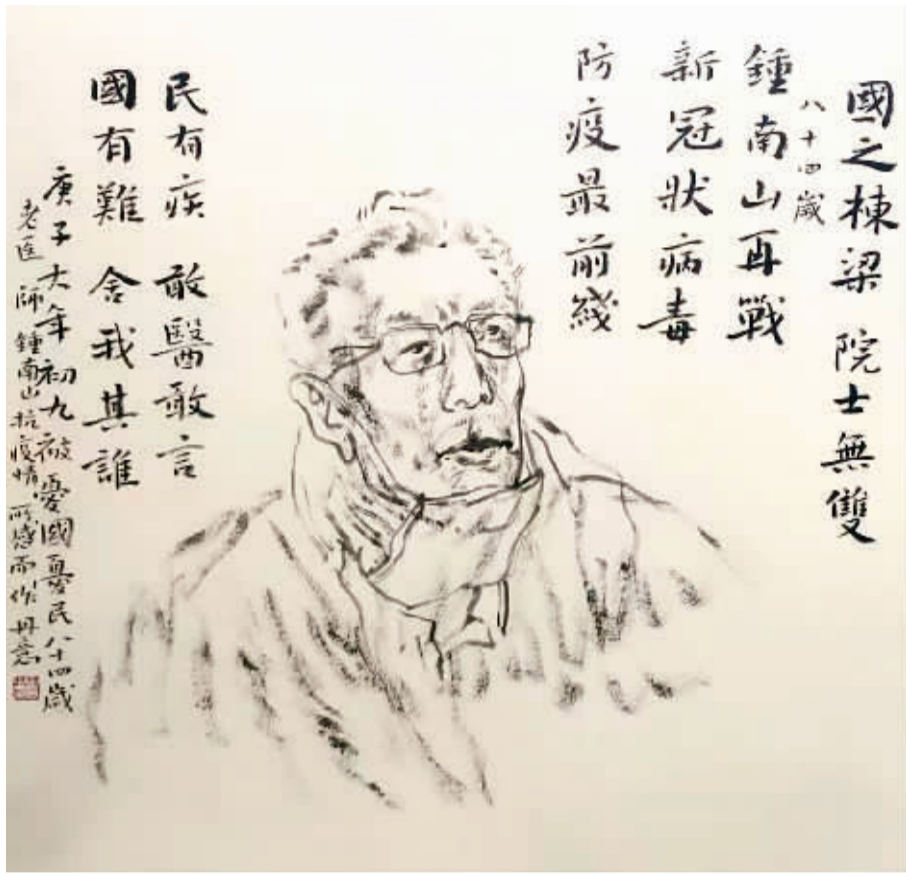 國之棟梁 院士無雙
八十四歲
鍾南山再戰
新冠狀病毒
防疫最前綫
民有疾 敢醫敢言
國有難 舍我其誰
庚子大年初九被憂國憂民八十四歲
老医師鍾南山抗疫情所感而作丹意